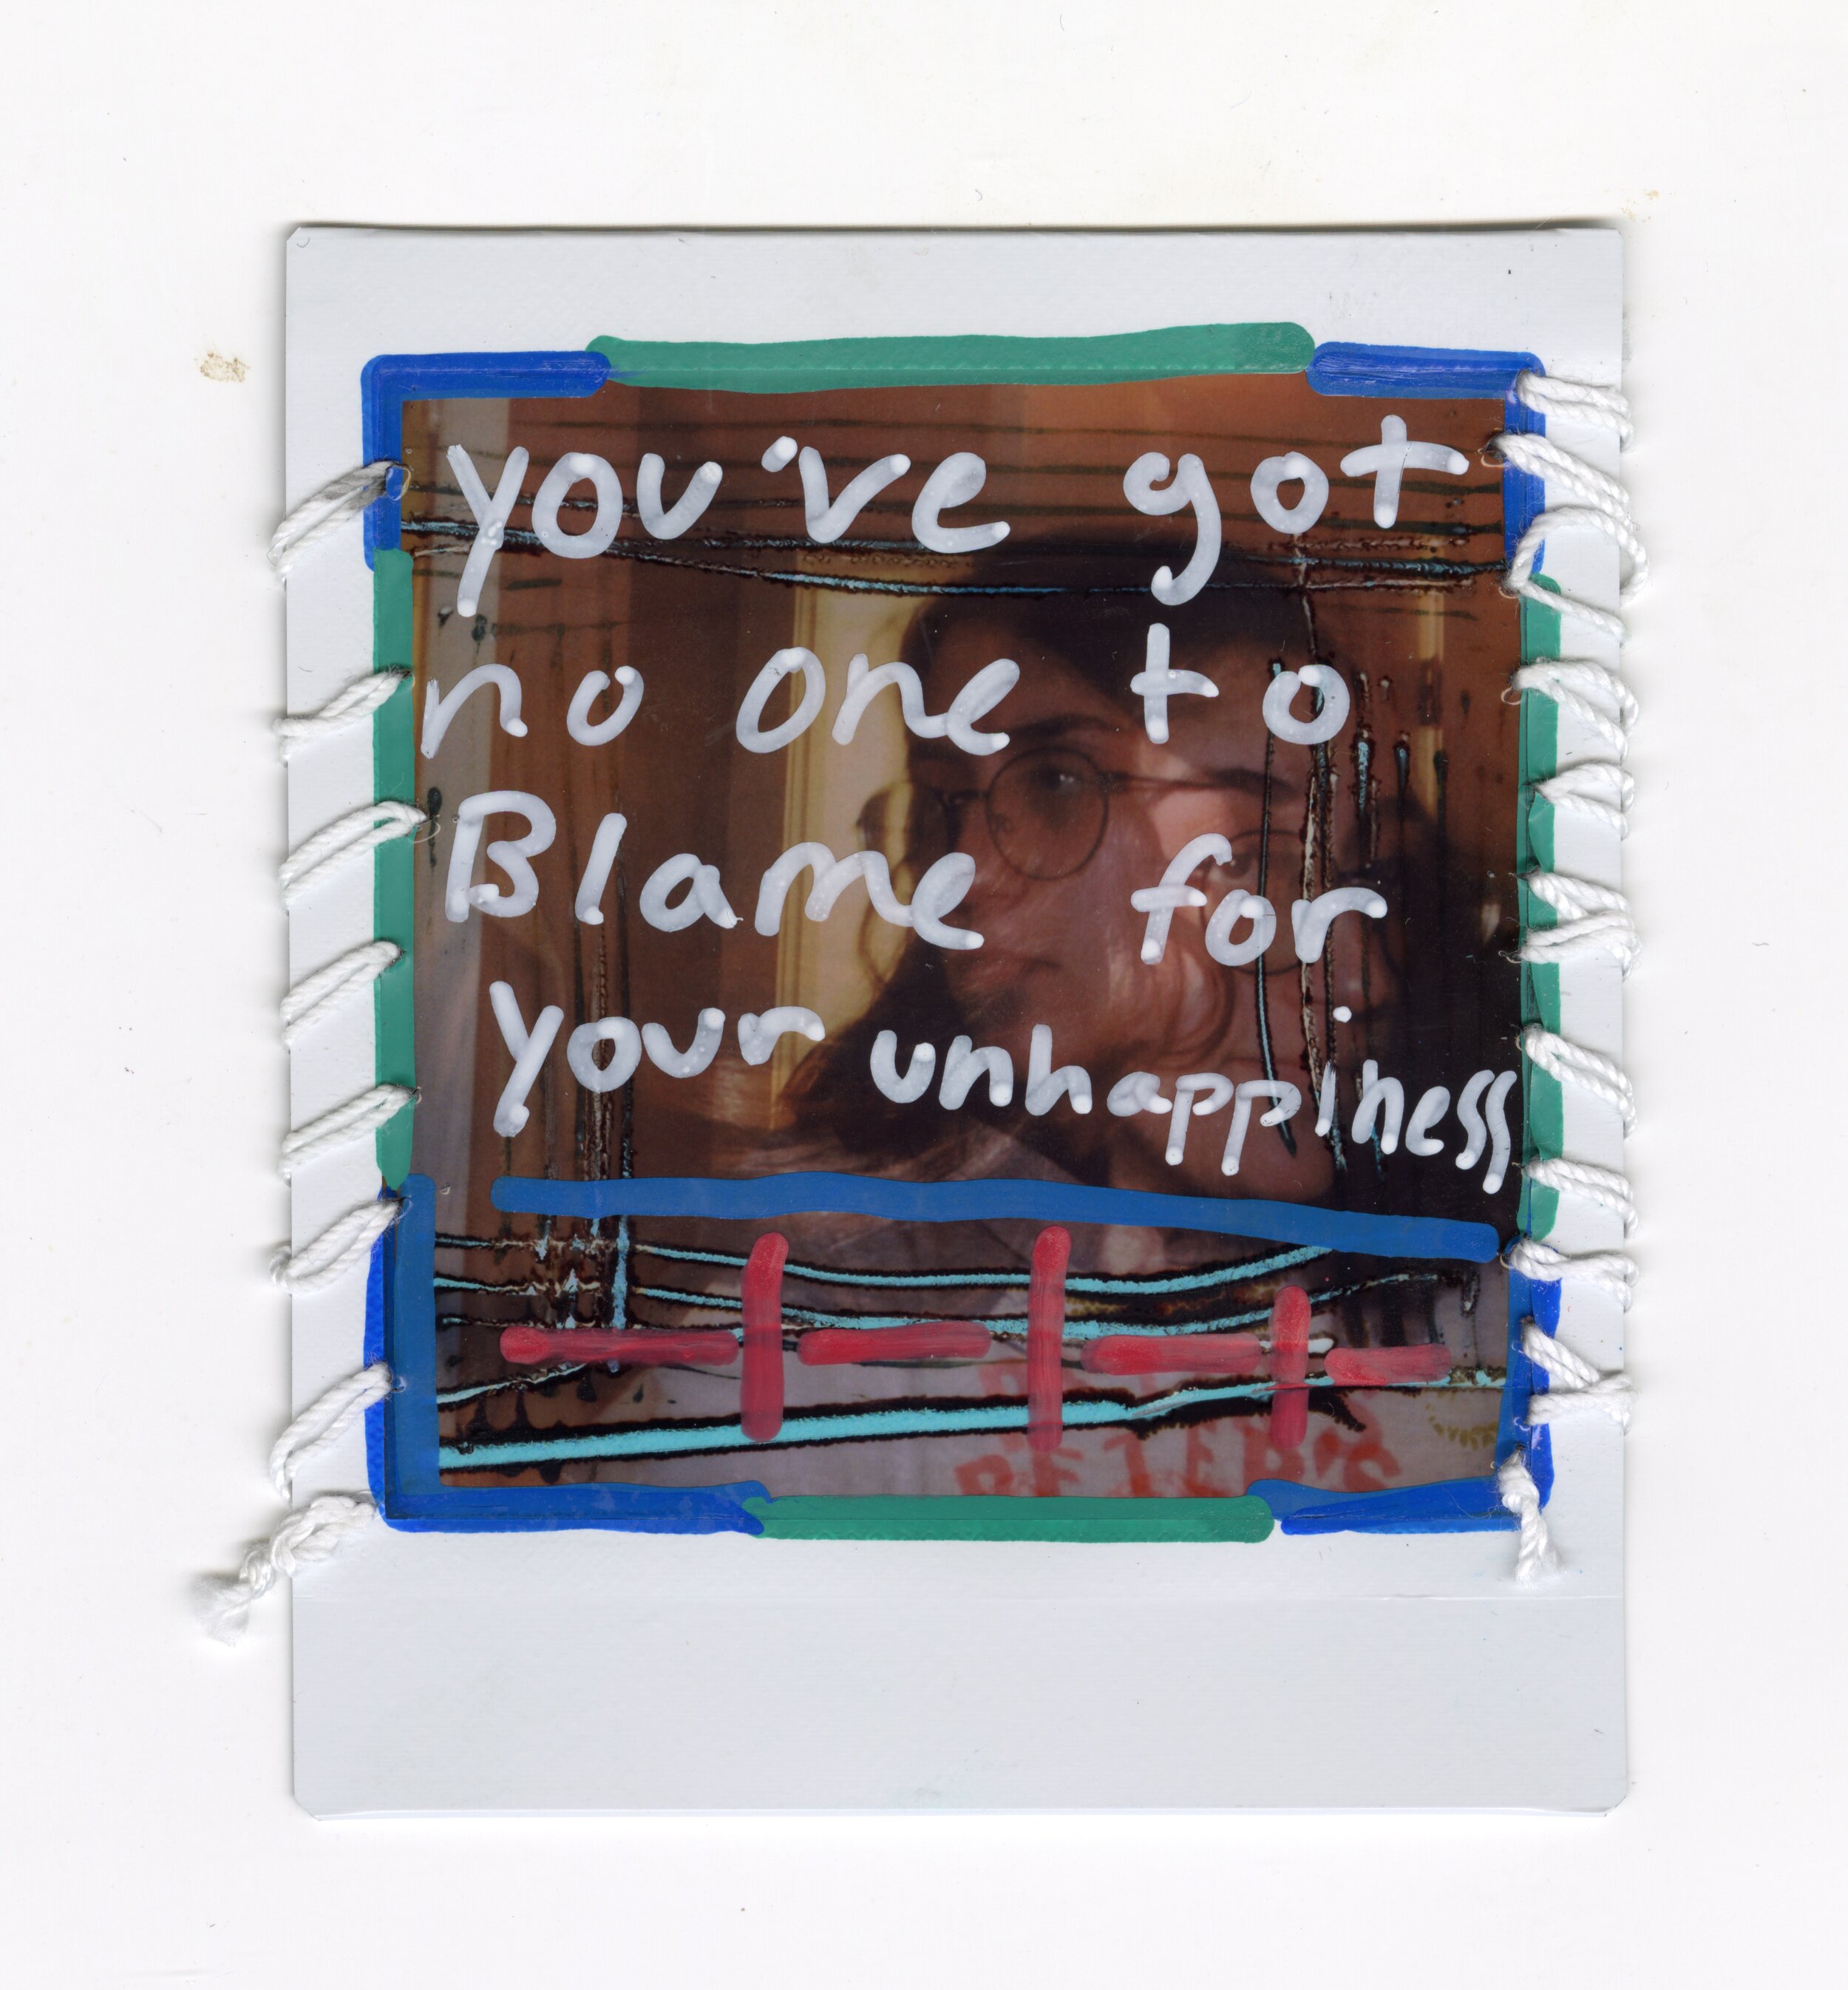 you've got
no one to
Blame for
your unhappiness